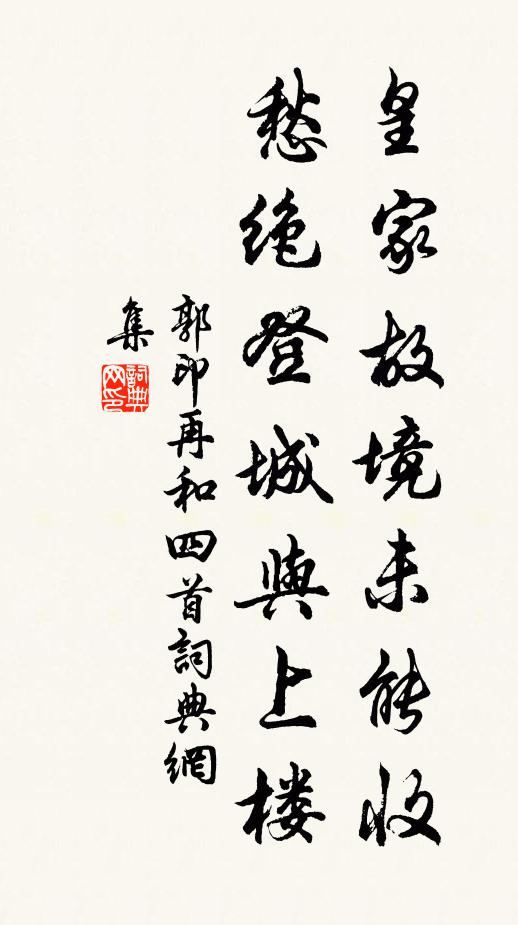 皇家故境未能收
愁绝登城與上楼
郭印再和四首詞典網
集
詞典网印